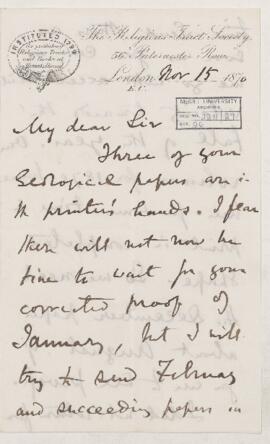 INSTITUTED 1799
The Religious Tract Society
56 Paternoster Row
London Nov 15 1870
E.C.
McGILL UNIVERSITY
ARCHIVES
My dear Sir
Three of your
Geological papers are in
the printer's hands. I fear
there will not now be
time to wait for your
corrected proof of
January, but I will
try to send February
and succeeding papers in